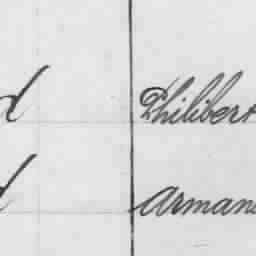 d Philibert
d Arman